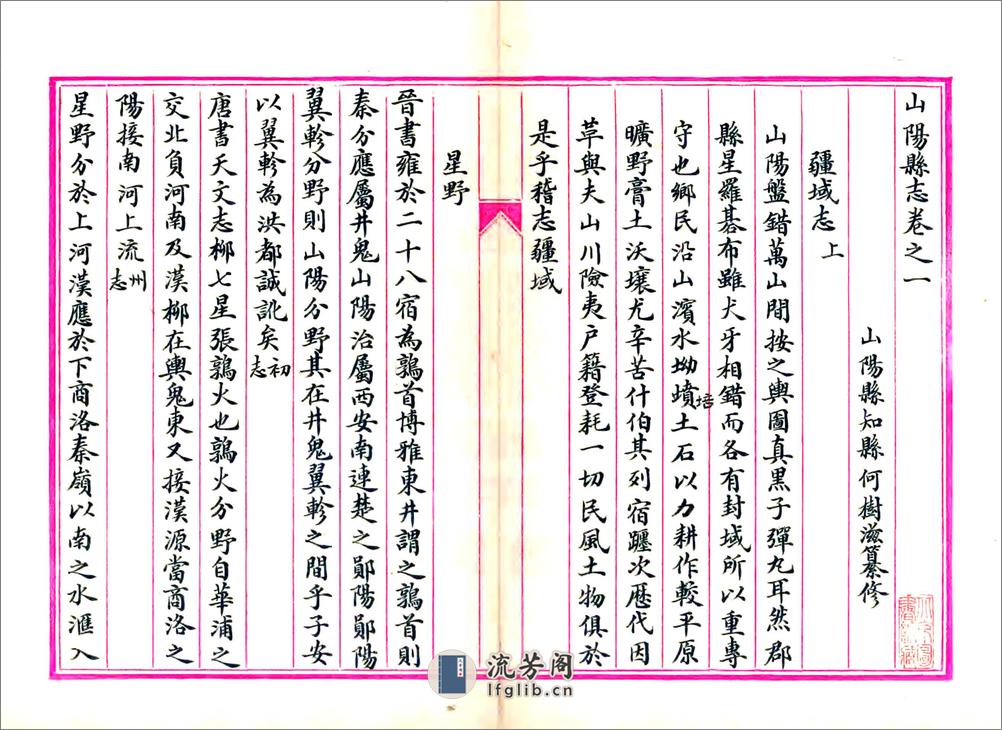 山陽縣志卷之一
山陽縣知縣何樹滋纂修
疆域志上
山陽盤錯萬山間按之輿圖真黑子彈丸耳然郡
縣星羅碁布雖犬牙相錯而各有封域所以重專
守也鄉民沿山濱水坳墳培土石以力耕作較平原
曠野膏土沃壤尤辛苦什伯其列宿躔次歷代因
革與夫山川險夷户籍登耗一切民風土物俱於
是乎稽志疆域
星野
晉書雍於二十八宿為鶉首博雅東井謂之鶉首則
秦分應屬井鬼山陽治屬西安南連楚之鄖陽鄖陽
翼軫分野則山陽分野其在井鬼翼軫之間乎子安
以翼軫為洪都誠訛矣初志
唐書天文志柳七星張鶉火也鶉火分野自華浦之
交北負河南及漢柳在輿鬼東又接漢源當商洛之
陽接南河上流州志
星野分於上河漢應於下商洛秦嶺以南之水滙入
流芳阁
lfglib.cn